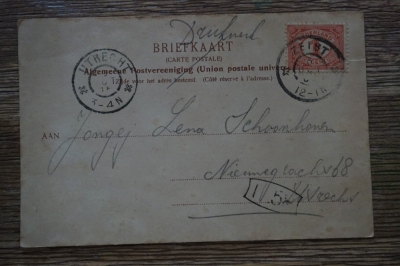 Drukwerk
BRIEFKAART
(CARTE POSTALE)
Algemeene Postvereeniging (Union postale univers
Zijde voor het adres bestemd. (Côté réservé à l'adresse.)
UTRECHT
4-4N
ZEIST
12-1N
AAN
Jongej Lena Schoonhoven
Nieuwegracht 68
Utrecht